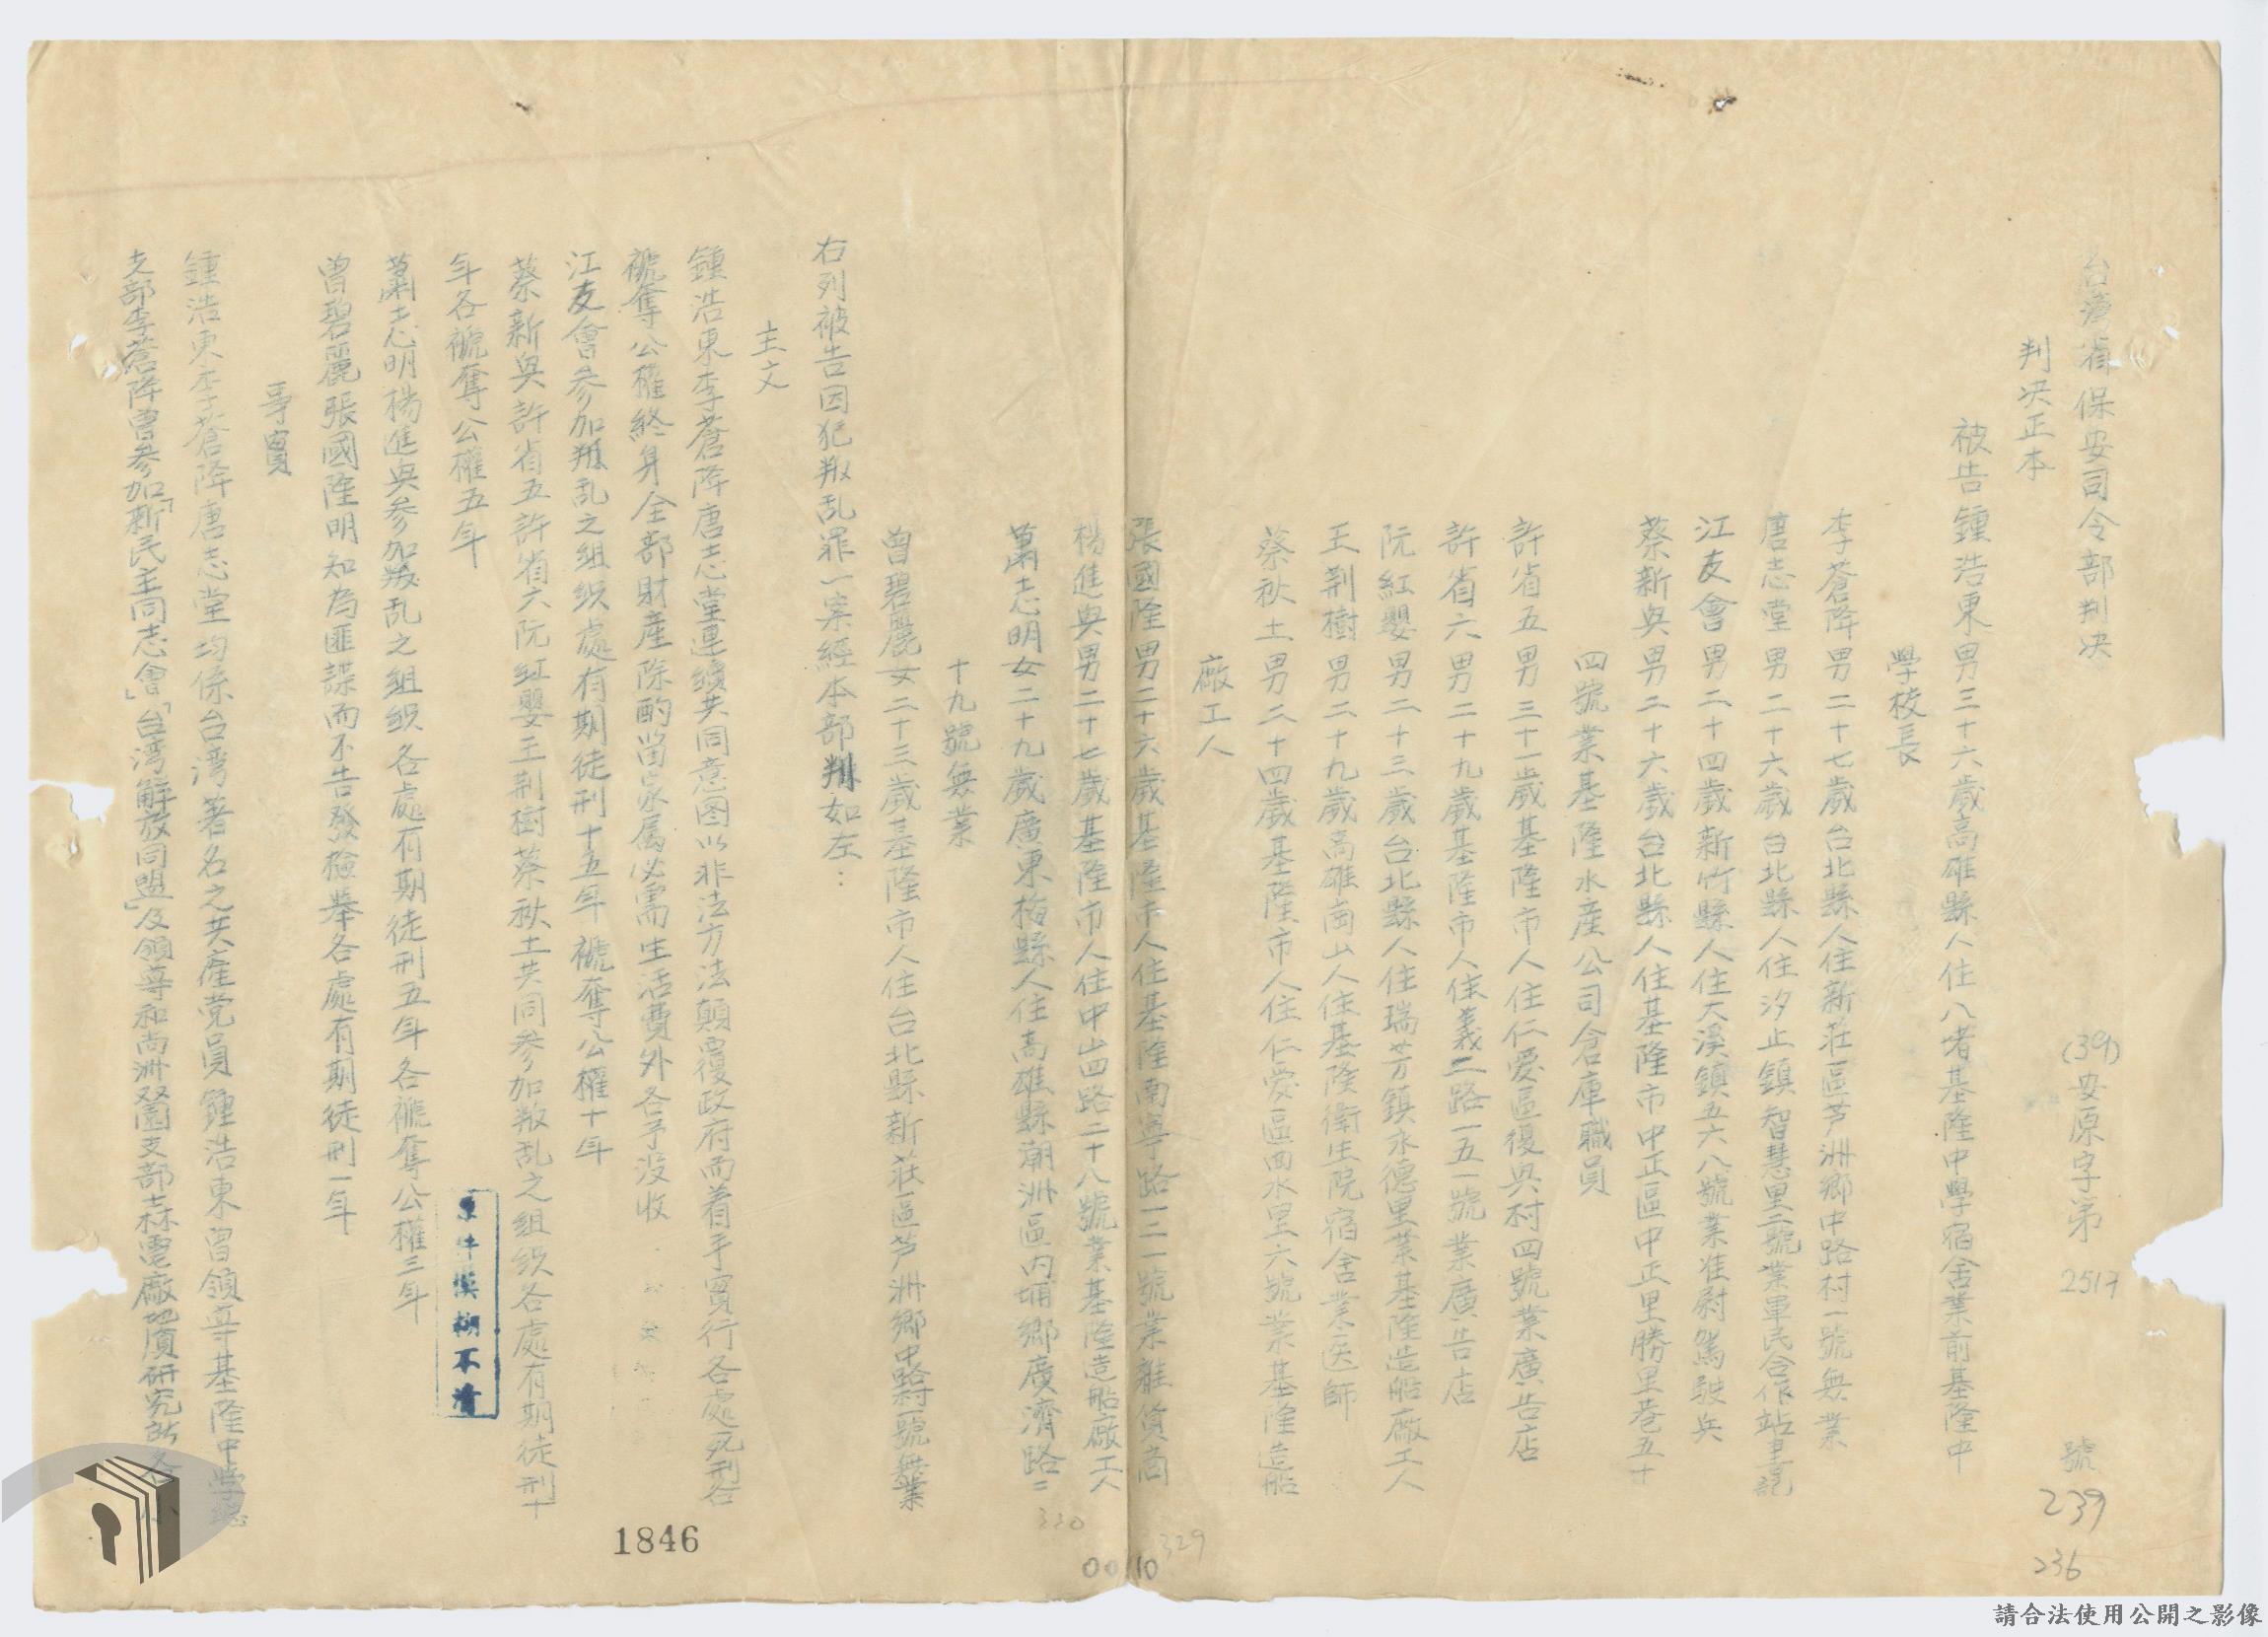 台灣省保安司令部判决
(39)安原字第2517號
判决正本
被告鍾浩東男三十六歲高雄縣人住八堵基隆中學宿舍業前基隆中
學校長
李蒼降男二十七歲台北縣人住新莊區芦洲鄉中路村一號無業
唐志堂男二十六歲台北縣人住汐止鎮智慧里二號業軍民合作站書記
江支會男二十四歲新竹縣人住大溪鎮五六八號業准尉駕駛兵
蔡新興男二十六歲台北縣人住基隆市中正區中正里勝里巷五十
四號業基隆水產公司倉庫職員
許省五男三十一歲基隆市人住仁愛區復興村四號業廣告店
許省六男二十九歲基隆市人住義二路一五一號業廣告店
阮紅嬰男二十三歲台北縣人住瑞芳鎮永德里業基隆造船廠工人
王荆樹男二十九歲高雄岡山人住基隆衛生院宿舍業医師
蔡秋土男二十四歲基隆市人住仁愛區曲水里六號業基隆造船
廠工人
張國隆男二十六歲基隆市人住基隆南寧路一三一號業雜貨商
楊進興男二十七歲基隆市人住中山四路二十八號業基隆造船廠工人
蕭志明女二十九歲廣東梅縣人住高雄縣潮洲區内埔鄉廣濟路二
十九號無業
曾碧麗女二十三歲基隆市人住台北縣新莊區芦洲鄉中路村一號無業
右列被告因犯叛乱罪一案經本部判决如左：
主文
鍾浩東李蒼降唐志堂連續共同意图以非法方法顛覆政府而着手實行各處死刑各
褫奪公權終身全部財產除酌留家屬必需生活費外各予没收
江支會參加叛乱之組织處有期徒刑十五年褫奪公權十年
蔡新興許省五許省六阮紅嬰王荆樹蔡秋土共同參加叛乱之組织各處有期徒刑十
年各褫奪公權五年
蕭志明楊進興參加叛乱之組织各處有期徒刑五年各褫奪公權三年
曾碧麗張國隆明知為匪諜而不告發檢舉各處有期徒刑一年
事實
鍾浩東李蒼降唐志堂均係台湾著名之共產党員鍾浩東曾領导基隆中學總
支部李蒼降曾參加「新民主同志會」「台湾解放同盟」及領导和尚洲
支部
電廠地質研究所各小
原件模糊不清
1846
239
236
330
329
0010
請合法使用公開之影像